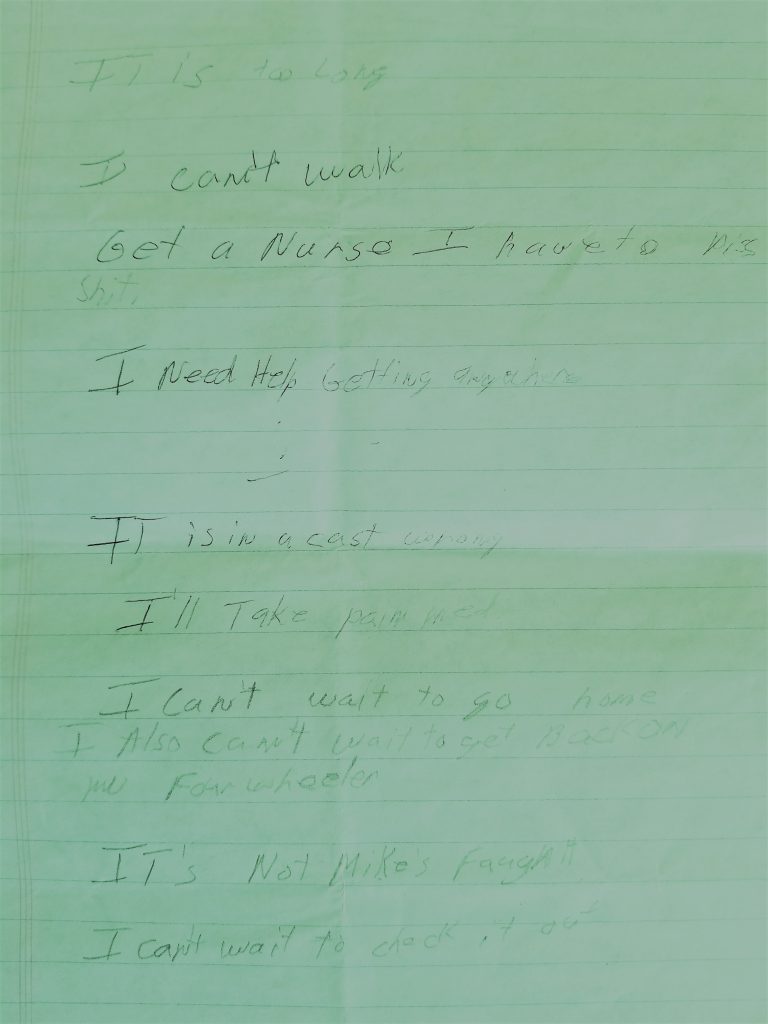 IT is too Long
I can't walk
Get a Nurse I have to piss
shit.
I Need Help Getting anywhere
IT is in a cast wrong
I'll Take pain med
I Can't wait to go home
I Also Can't wait to get Back ON
my Four wheeler
IT's Not Mike's
I can't wait to check it out